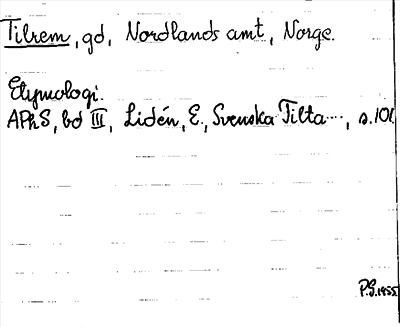 Tilrem, gd, Nordlands amt, Norge.
Etymologi.
APhS, bd III, Lidén, E., Svenska Tilta..., s. 101.
P.G. 1955